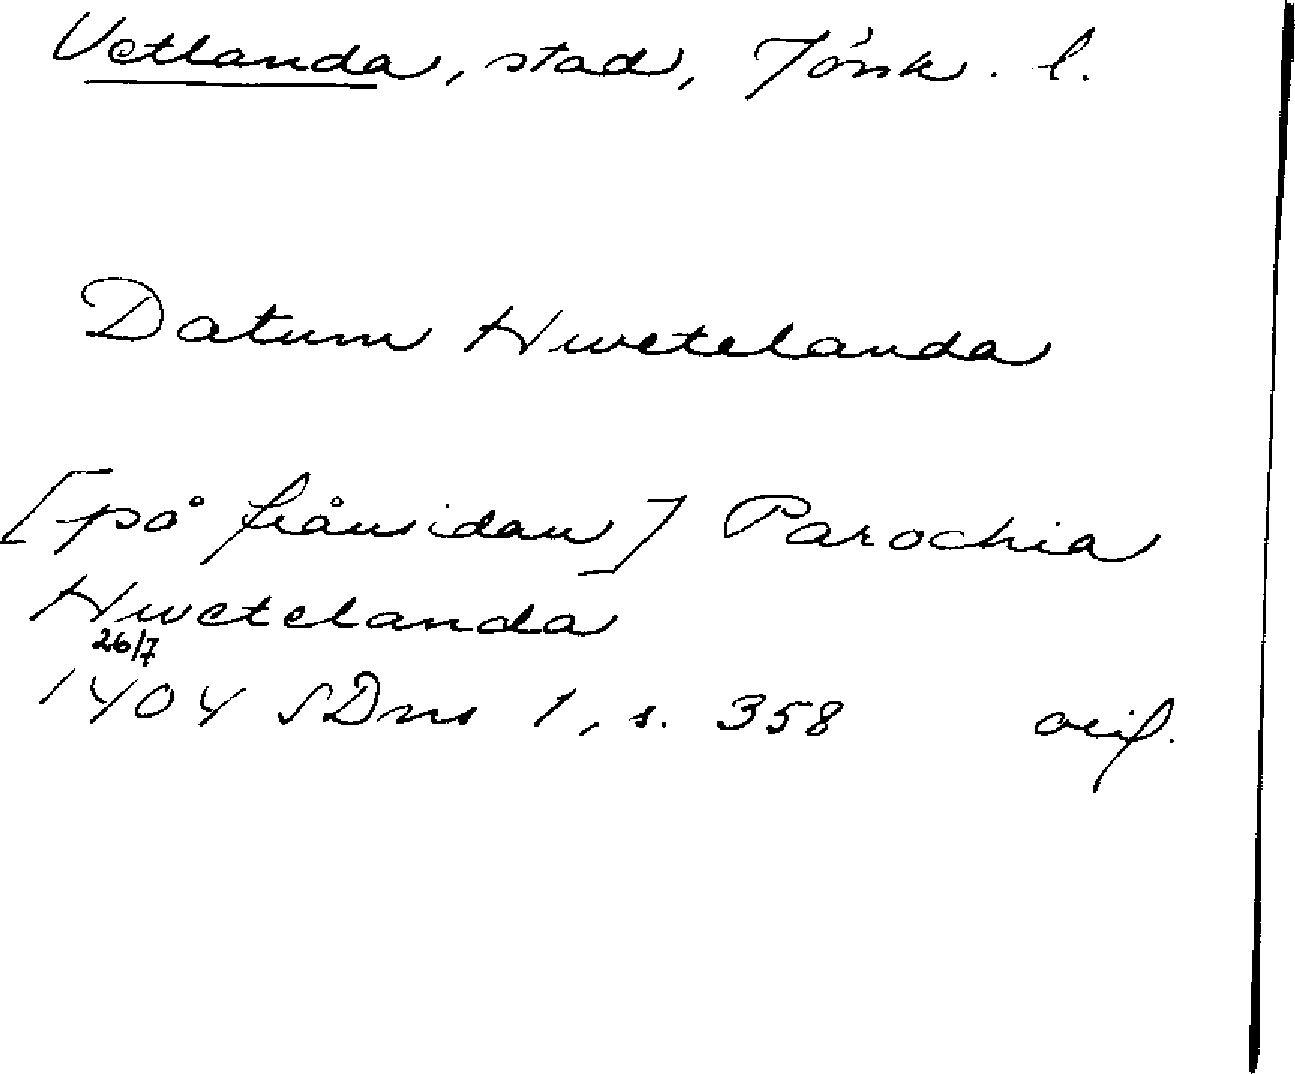 Vetlanda, stad, Jönk. l.
Datum Hwetelanda
[på frånsidan] Parochia
Hwetelanda
26/7
1404 SDns 1, s. 358 orig.